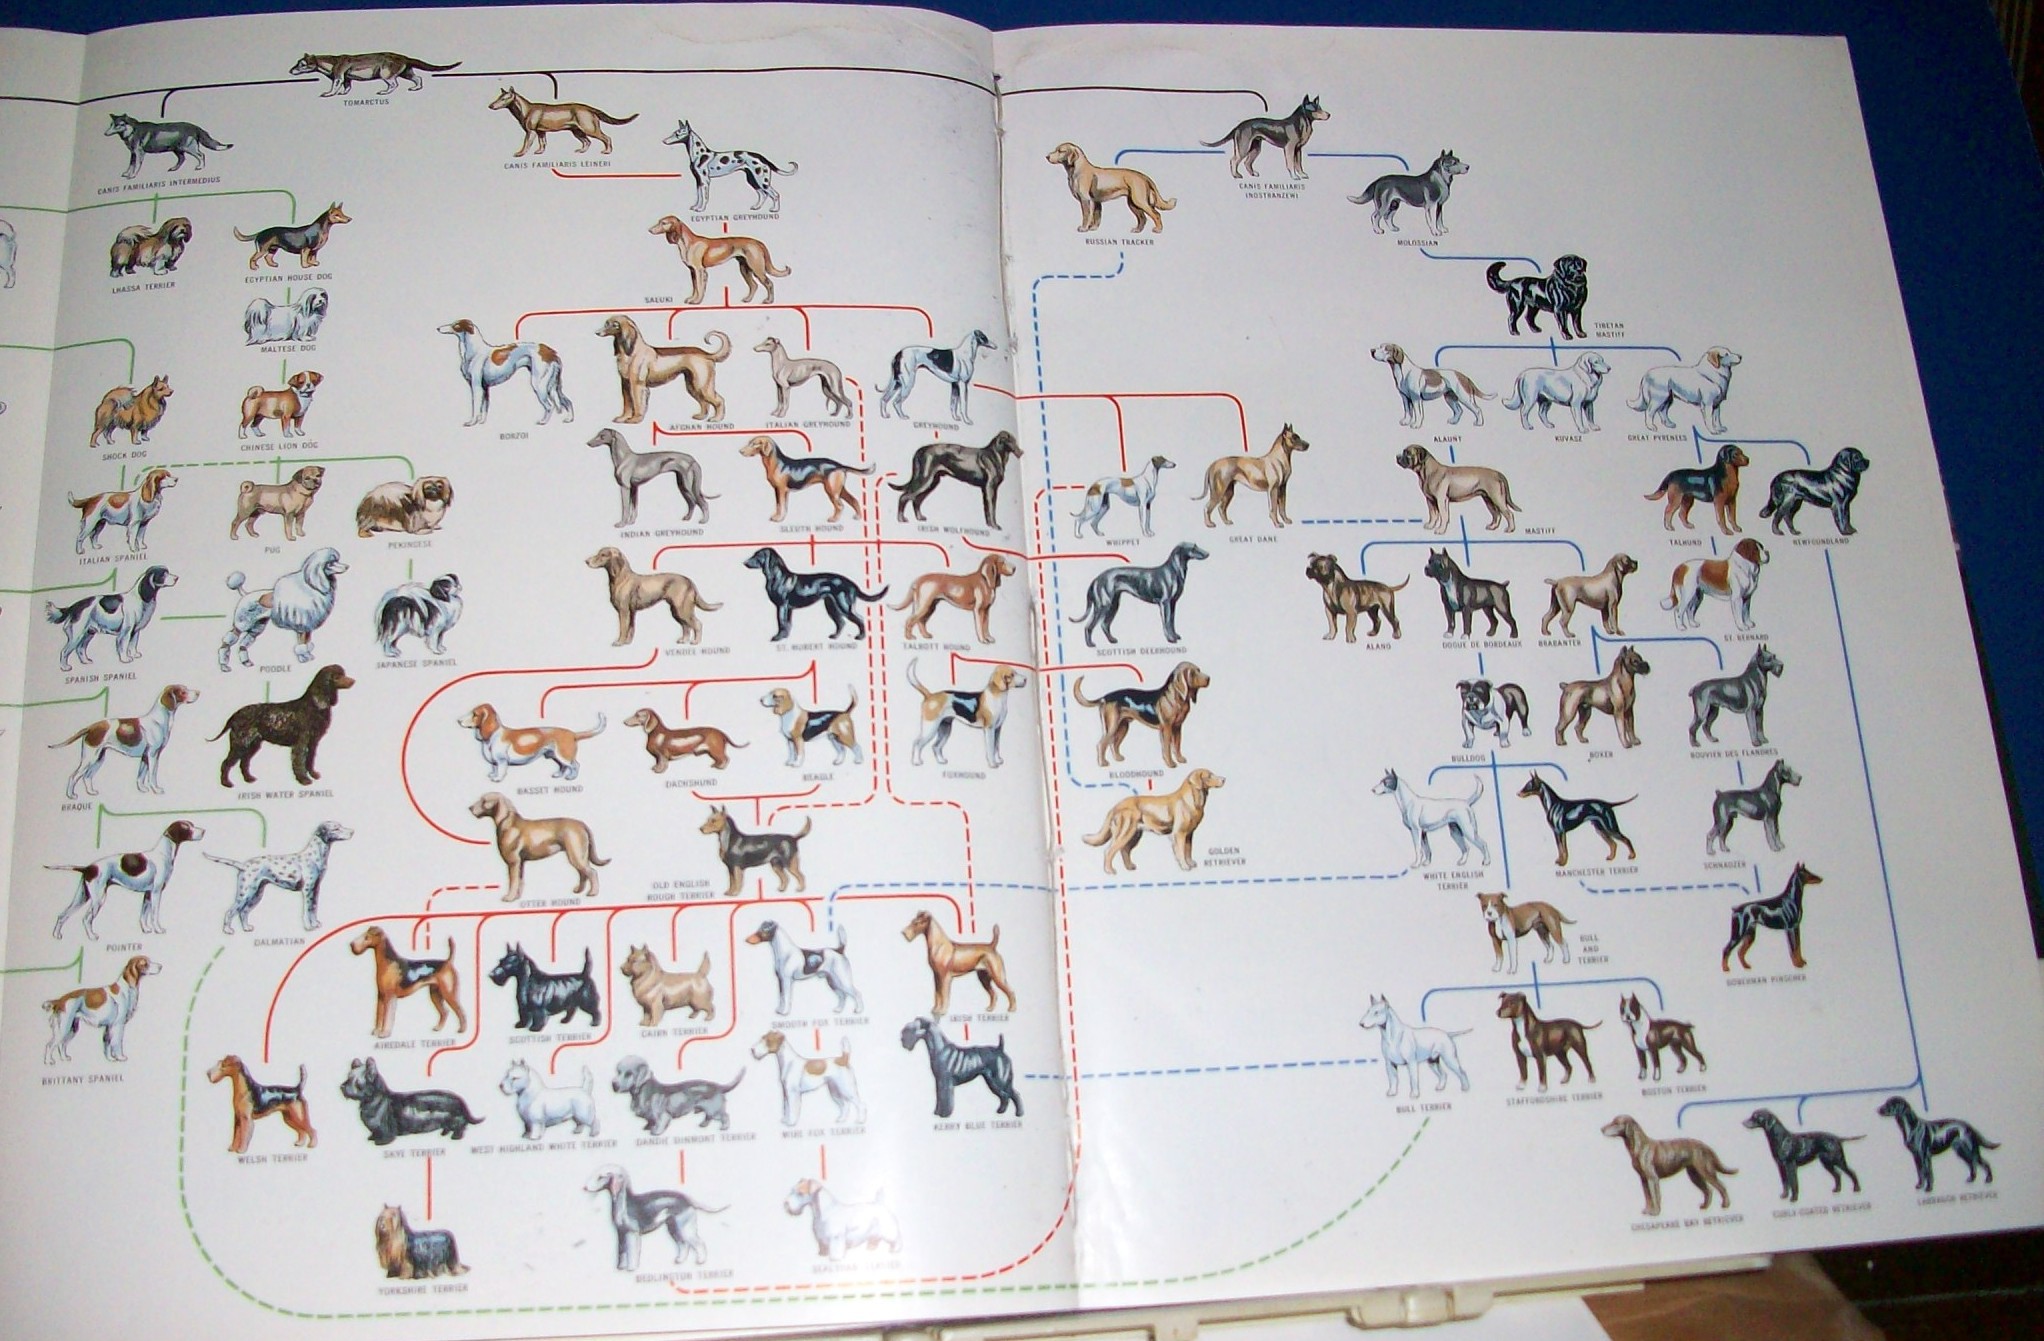 TOMARCTUS
CANIS FAMILIARIS INTERMEDIUS
CANIS FAMILIARIS LEINERI
EGYPTIAN GREYHOUND
CANIS FAMILIARIS
INOSTRANZEWI
RUSSIAN TRACKER
MOLOSSIAN
LHASSA TERRIER
EGYPTIAN HOUSE DOG
SALUKI
TIBETAN
MASTIFF
MALTESE DOG
SHOCK DOG
CHINESE LION DOG
BORZOI
AFGHAN HOUND
ITALIAN GREYHOUND
GREYHOUND
ALAUNT
KUVASZ
GREAT PYRENEES
ITALIAN SPANIEL
PUG
PEKINGESE
INDIAN GREYHOUND
SLEUTH HOUND
IRISH WOLFHOUND
WHIPPET
GREAT DANE
MASTIFF
TALHUND
NEWFOUNDLAND
SPANISH SPANIEL
POODLE
JAPANESE SPANIEL
VENDEE HOUND
ST. HUBERT HOUND
TALBOTT HOUND
SCOTTISH DEERHOUND
ALANO
DOGUE DE BORDEAUX
BRABANTER
ST. BERNARD
BRAQUE
IRISH WATER SPANIEL
BASSET HOUND
DACHSHUND
BEAGLE
FOXHOUND
BLOODHOUND
BULLDOG
BOXER
BOUVIER DES FLANDRES
POINTER
DALMATIAN
OTTER HOUND
OLD ENGLISH
ROUGH TERRIER
GOLDEN
RETRIEVER
WHITE ENGLISH
TERRIER
MANCHESTER TERRIER
SCHNAUZER
BULL
AND
TERRIER
DOBERMAN PINSCHER
BRITTANY SPANIEL
AIREDALE TERRIER
SCOTTISH TERRIER
CAIRN TERRIER
SMOOTH FOX TERRIER
IRISH TERRIER
WELSH TERRIER
SKYE TERRIER
WEST HIGHLAND WHITE TERRIER
DANDIE DINMONT TERRIER
WIRE FOX TERRIER
KERRY BLUE TERRIER
BULL TERRIER
STAFFORDSHIRE TERRIER
BOSTON TERRIER
YORKSHIRE TERRIER
BEDLINGTON TERRIER
SEALYHAM TERRIER
CHESAPEAKE BAY RETRIEVER
CURLY-COATED RETRIEVER
LABRADOR RETRIEVER